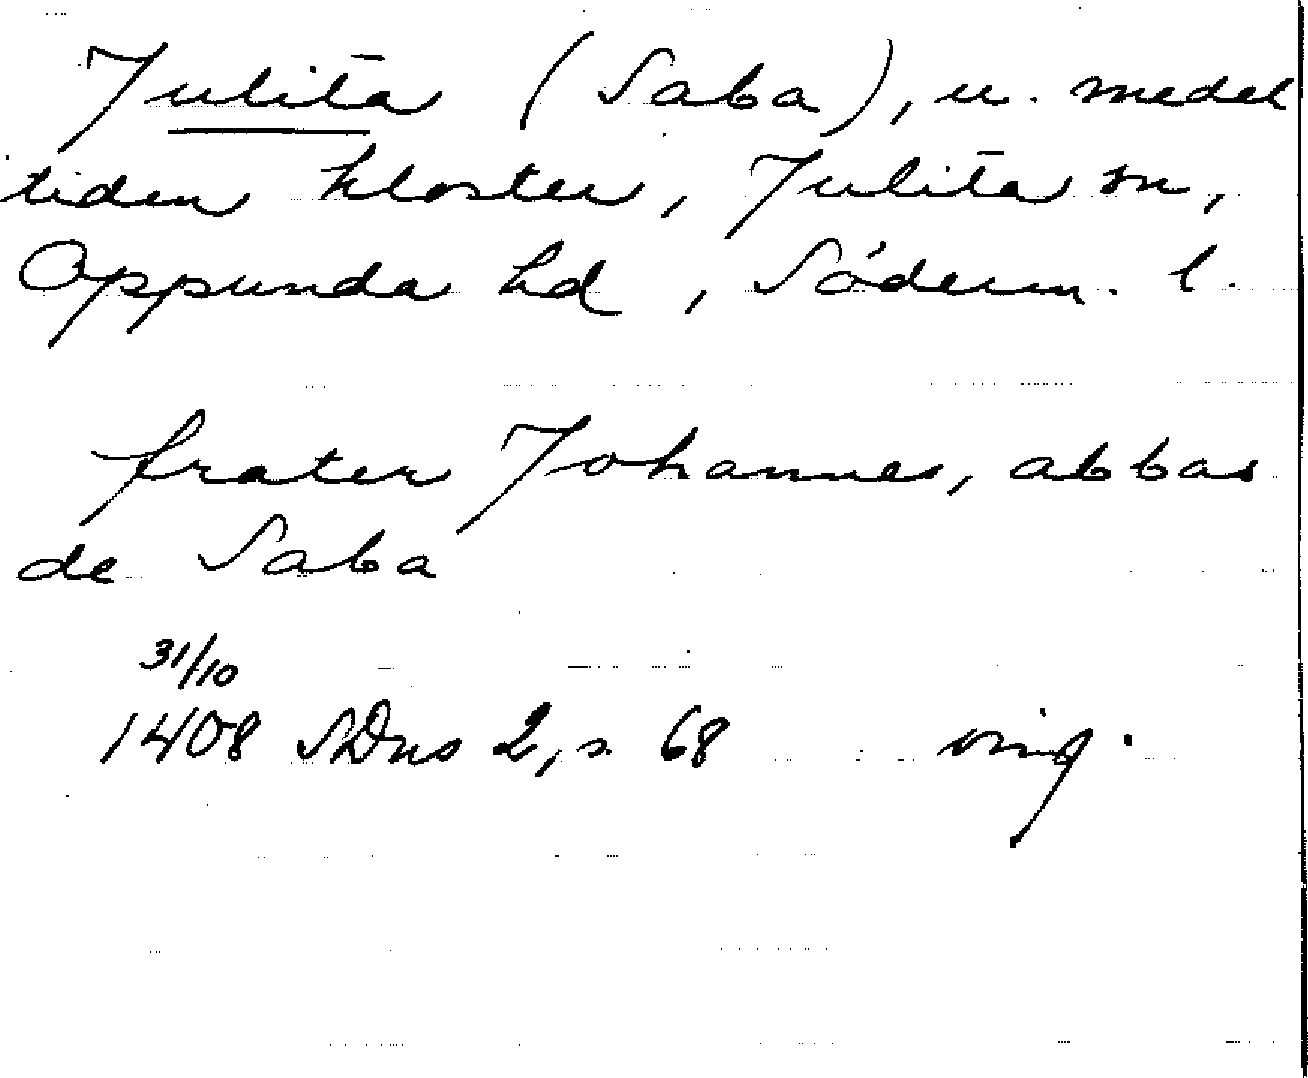 Julita (Saba), u. medel
tiden kloster, Julita sn,
Oppunda hd, Söderm. l.
frater Johannes, abbas
de Saba
31/10
1408 SDns 2, s. 68 orig.